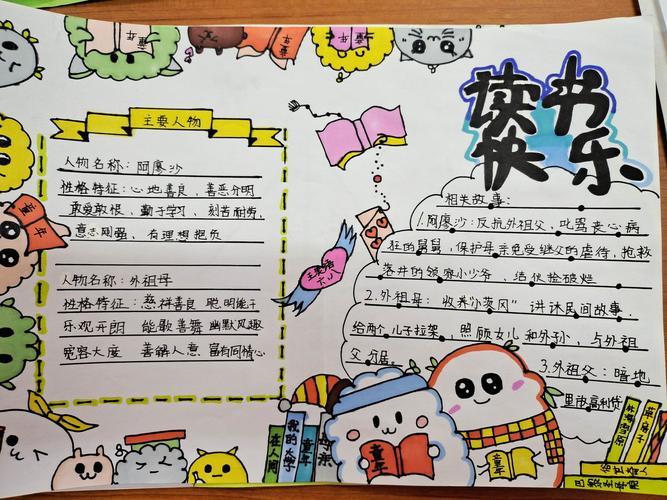 读书
快乐
主要人物
人物名称：阿廖沙
性格特征：心地善良，善恶分明
敢爱敢恨，勤于学习、刻苦耐劳，
意志刚强，有理想抱负
人物名称：外祖母
性格特征：慈祥善良 聪明能干
乐观开朗 能歌善舞 幽默风趣
宽容大度 善解人意 富有同情心
相关故事：
1.阿廖沙：反抗外祖父，叱骂丧心病
狂的舅舅，保护母亲免受继父的虐待，抢救
落井的
小少爷，结伙捡破烂
2.外祖母：收养"小茨冈"讲述民间故事，
给两个儿子拉架，照顾女儿和外孙，与外祖
父分居。
3.外祖父：暗地
里市高利贷
童年
童年
童年
童年
在人间
我的大学
童年
母亲
童年
林海雪原
草房子